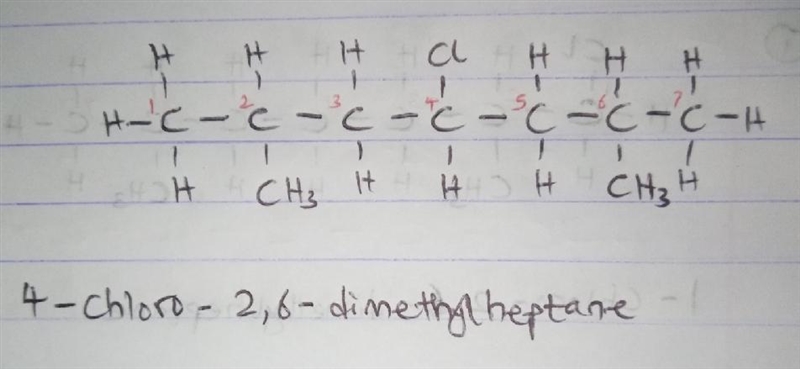 H H H Cl H H H
H-C1 - C2 - C3 - C4 - C5 - C6 - C7 - H
H CH3 H H H CH3 H
4-chloro-2,6-dimethylheptane